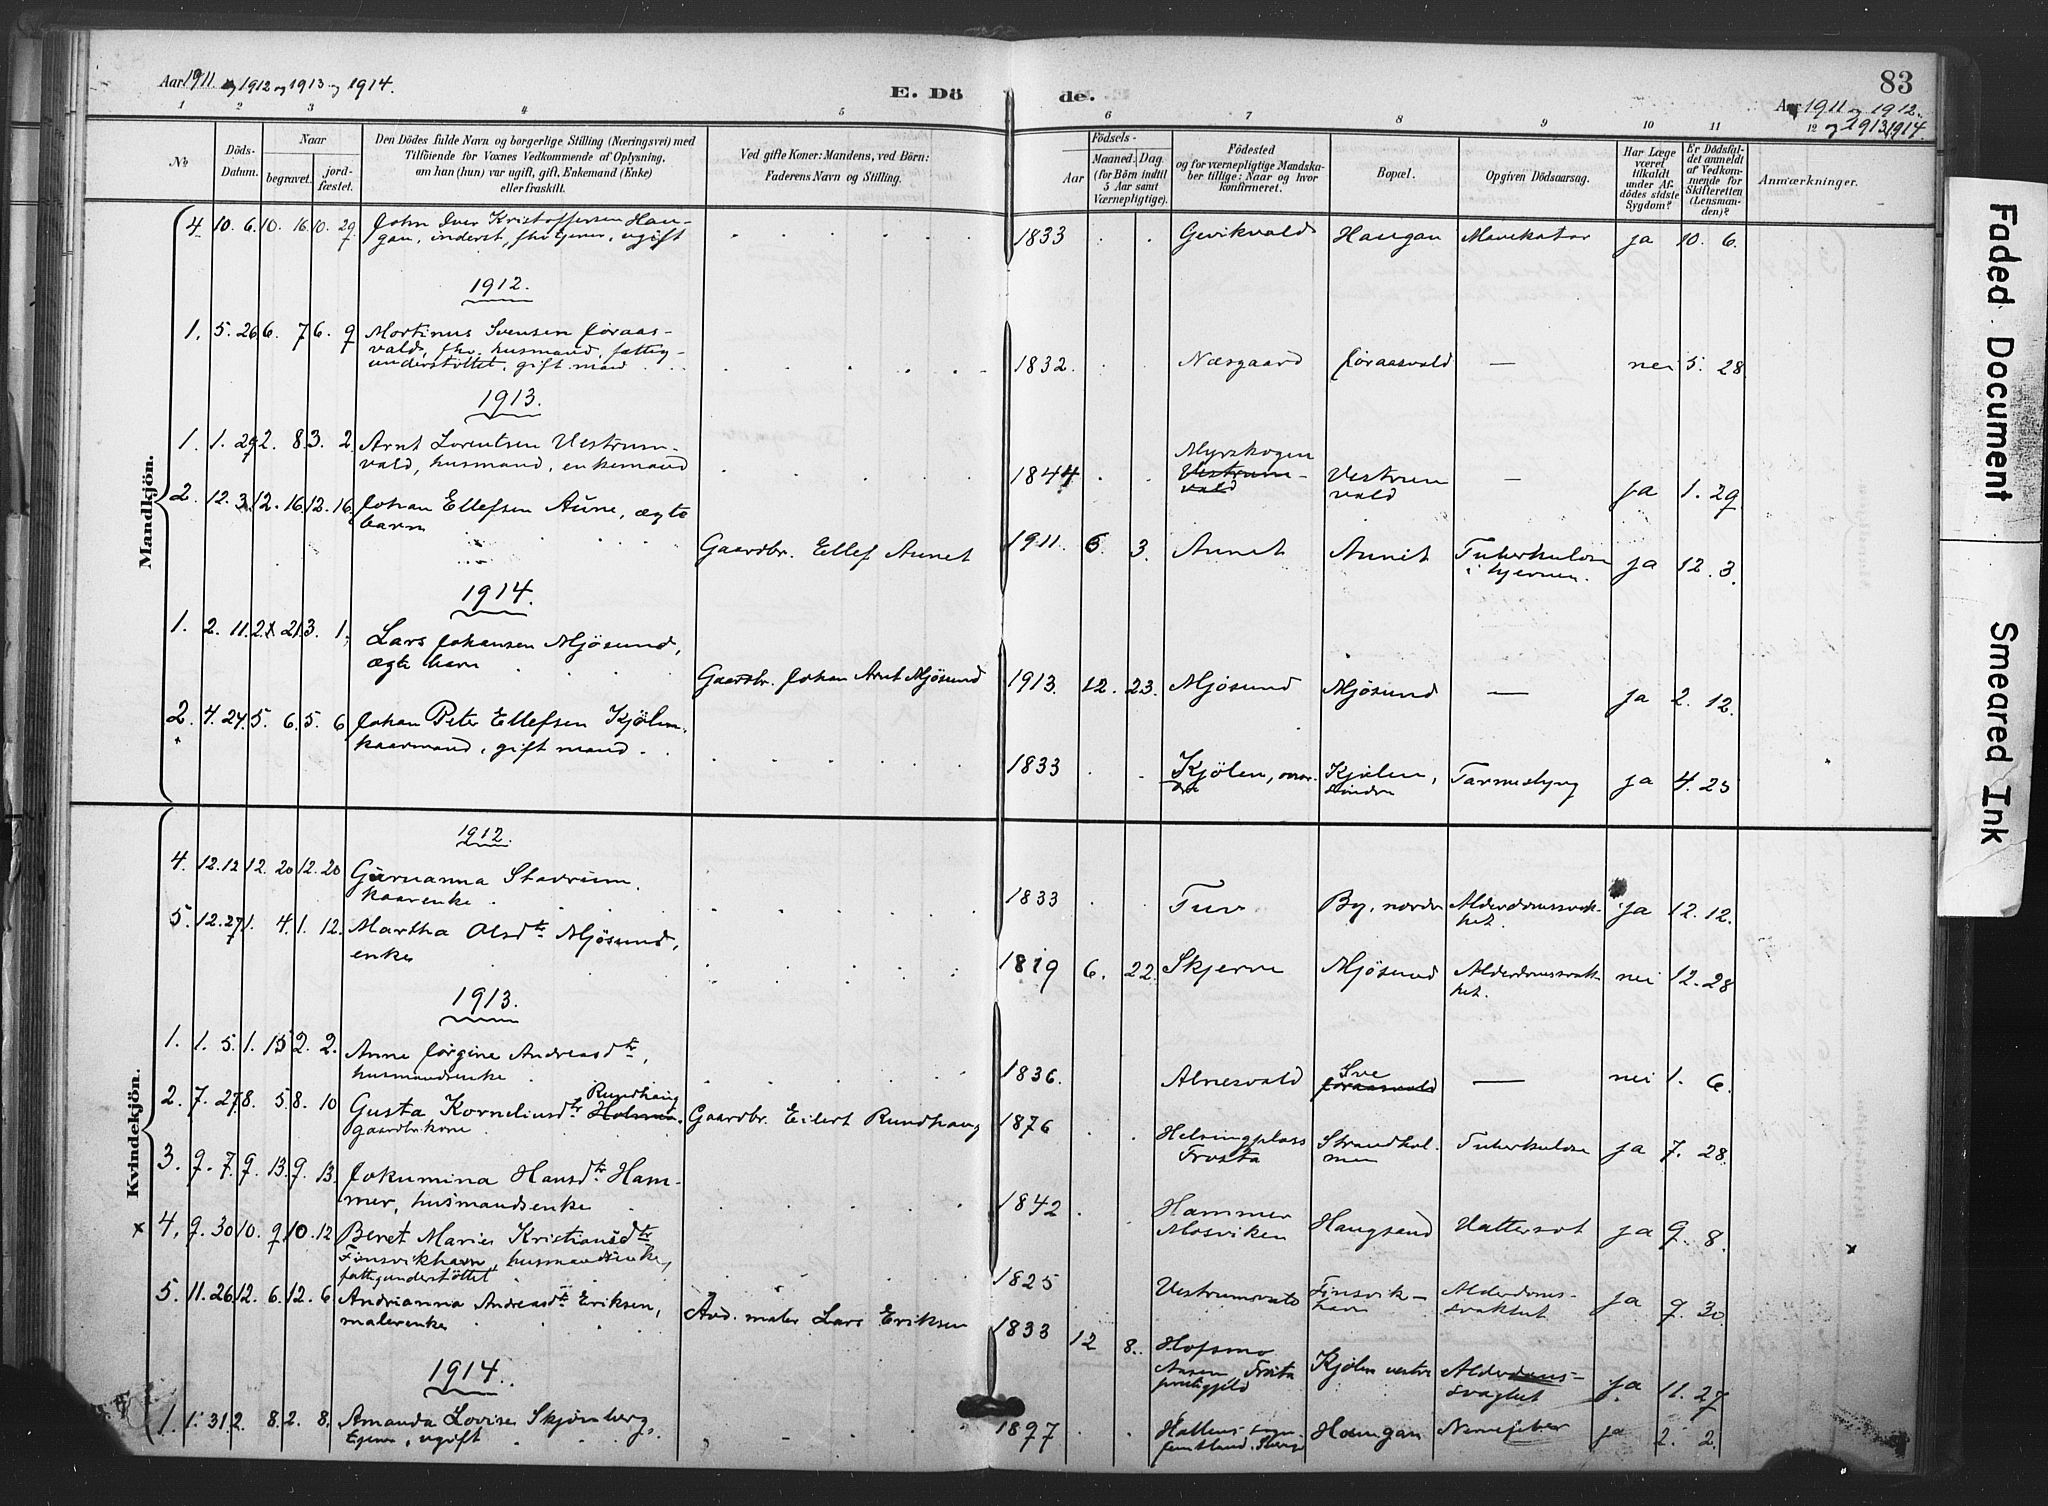 Aar 1911 og 1912 og 1913 og 1914.
E. Dö
de.
83
Aar 1911 og 1912.
og 1913, 1914
1 2 3 4 5 6 7 8 9 10 11 12
No
Döds-
Datum.
Naar
begravet.
jord-
fæstet.
Den Dödes fulde Navn og borgerlige Stilling (Næringsvei) med
Tilföiende for Voxnes Vedkommende af Oplysning,
om han (hun) var ugift, gift, Enkemand (Enke)
eller fraskilt.
Ved gifte Koner: Mandens, ved Börn:
Faderens Navn og Stilling.
Födsels-
Aar
Maaned. Dag.
(for Börn indtil
5 Aar samt
Værnepligtige).
Födested
og for værnepligtige Mandska-
ber tillige: Naar og hvor
konfirmeret.
Bopæl.
Opgiven Dödsaarsag.
Har Læge
været
tilkaldt
under Af-
dödes sidste
Sygdom?
Er Dödsfal-
det anmeldt
af Vedkom-
mende for
Skifteretten
(Lensman-
den)?
Anmærkninger.
Mandkjön.
4 10. 6. 10. 16. 10. 29 John Iver Kristoffersen Hau-
gan, inderst, fhv tjener, ugift
1833 Gevikvald Haugan Mavekatar ja 10. 6.
1912.
1. 5. 26 6. 7 6. 9 Mortinus Svensen Joraas-
vald, fhv. husmand, fattig-
understöttet, gift mand
1832. Næsgaard Joraasvald — nei 5. 28.
1913.
1. 1. 29 2. 8. 3. 2. Arnt Lorentsen Vestrum-
vald, husmand, enkemand
1844 Myrskogen
Vestrum-
vald
Vestrum
vald
— ja 1. 29
2. 12. 3. 12. 16. 12. 16. Johan Ellefsen Aune, ægte
barn
Gaardbr. Ellef Aunet
1911. 6. 3. Aunet Aunet Tuberkulose
i hjernen.
ja 12. 3.
1914.
1. 2. 11. 2. 21. 3. 1. Lars Johansen Mjösund,
ægte barn
Gaardbr. Johan Arnt Mjösund
1913. 12. 23. Mjösund Mjösund — ja 2. 12.
2. 4. 24. 5. 6. 5. 6 Johan Peter Ellefsen Kjölen.
kaarmand, gift mand
1833 Kjölen,
Kjölen,
Tarmeslyng ja 4. 25
Kvindekjön.
1912.
4. 12. 12 12. 20 12. 20 Gurianna Stavrum.
kaarenke
1833 Tuv By, nordre Alderdomssvak-
het.
ja 12. 12.
5. 12. 27 1. 4. 1. 12. Martha Olsdtr Mjösund,
enke
1819 6. 22. Skjerve Mjösund Alderdomssvak-
het.
nei 12. 28
1913.
1. 1. 5. 1. 15 2. 2. Anne Jörgine Andreasdtr,
husmandsenke
1836. Alnesvald Sve
Joraasvald
— nei 1. 6.
2. 7. 27 8. 5. 8. 10 Gusta Korneliusdtr Rundhaug
Holmen.
gaardbr.kone
Gaardbr. Eilert Rundhaug
1876 Helsingplass
Frosta
Strandhol-
men
Tuberkulose ja 7. 28.
3. 9. 7. 9. 13. 9. 13. Jokumina Hansdtr. Ham-
mer, husmandsenke
1842 Hammer
Mosviken
Haugsand Vattersot ja 9. 8.
x 4. 9. 30 10. 9. 10. 12 Beret Marie Kristiansdtr
Finsvikhavn, husmandsenke,
fattigunderstöttet
1825 Vestrumvald Finsvik-
havn
Alderdoms-
svakhet
ja 9. 30.
5. 11. 26 12. 6. 12. 6 Andrianna Andreasdtr Eriksen,
malerenke
Avd. maler Lars Eriksen
1833 12 8. Hofsmo
Aasen, Frosta
prestgjeld
Kjölen vestre Alderdoms-
svaghet
ja 11. 27
1914.
1. 1. 31. 2. 8. 2. 8. Amanda Lovise Skjönberg,
tjener, ugift
1897 Haugan Nervefeber ja 2. 2.
Faded Document
Smeared Ink